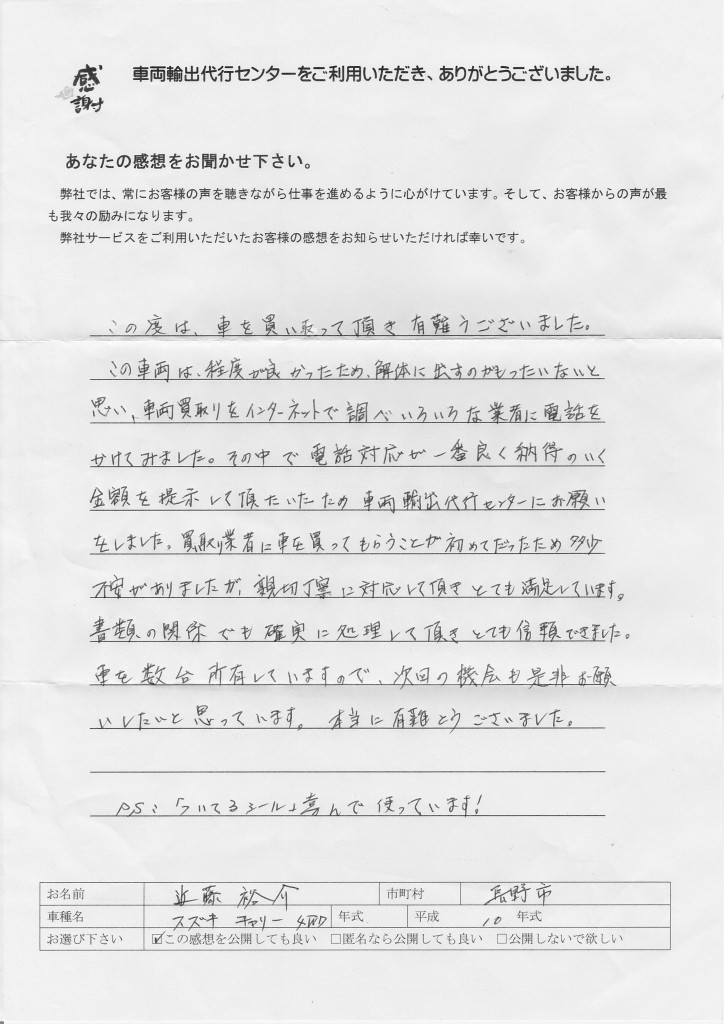 感謝
車両輸出代行センターをご利用いただき、ありがとうございました。
あなたの感想をお聞かせ下さい。
弊社では、常にお客様の声を聴きながら仕事を進めるように心がけています。そして、お客様からの声が最
も我々の励みになります。
弊社サービスをご利用いただいたお客様の感想をお知らせいただければ幸いです。
この度は、車を買い取って頂き有難うございました。
この車両は、程度が良かったため、解体に出すのがもったいないと
思い、車両買取りをインターネットで調べいろいろな業者に電話を
かけてみました。その中で電話対応が一番良く納得のいく
金額を提示して頂たいたため車両輸出代行センターにお願い
をしました。買取り業者に車を買ってもらうことが初めてだったため多少
不安がありましたが、親切丁寧に対応して頂きとても満足しています。
書類の関係でも確実に処理して頂きとても信頼できました。
車を数台所有していますので、次回の機会も是非お願
いしたいと思っています。本当に有難とうございました。
PS:「ついてるシール」喜んで使っています!
お名前 近藤裕介 市町村 長野市
車種名 スズキ キャリー 4WD 年式 平成 10 年式
お選び下さい ☑この感想を公開しても良い □匿名なら公開しても良い □公開しないで欲しい